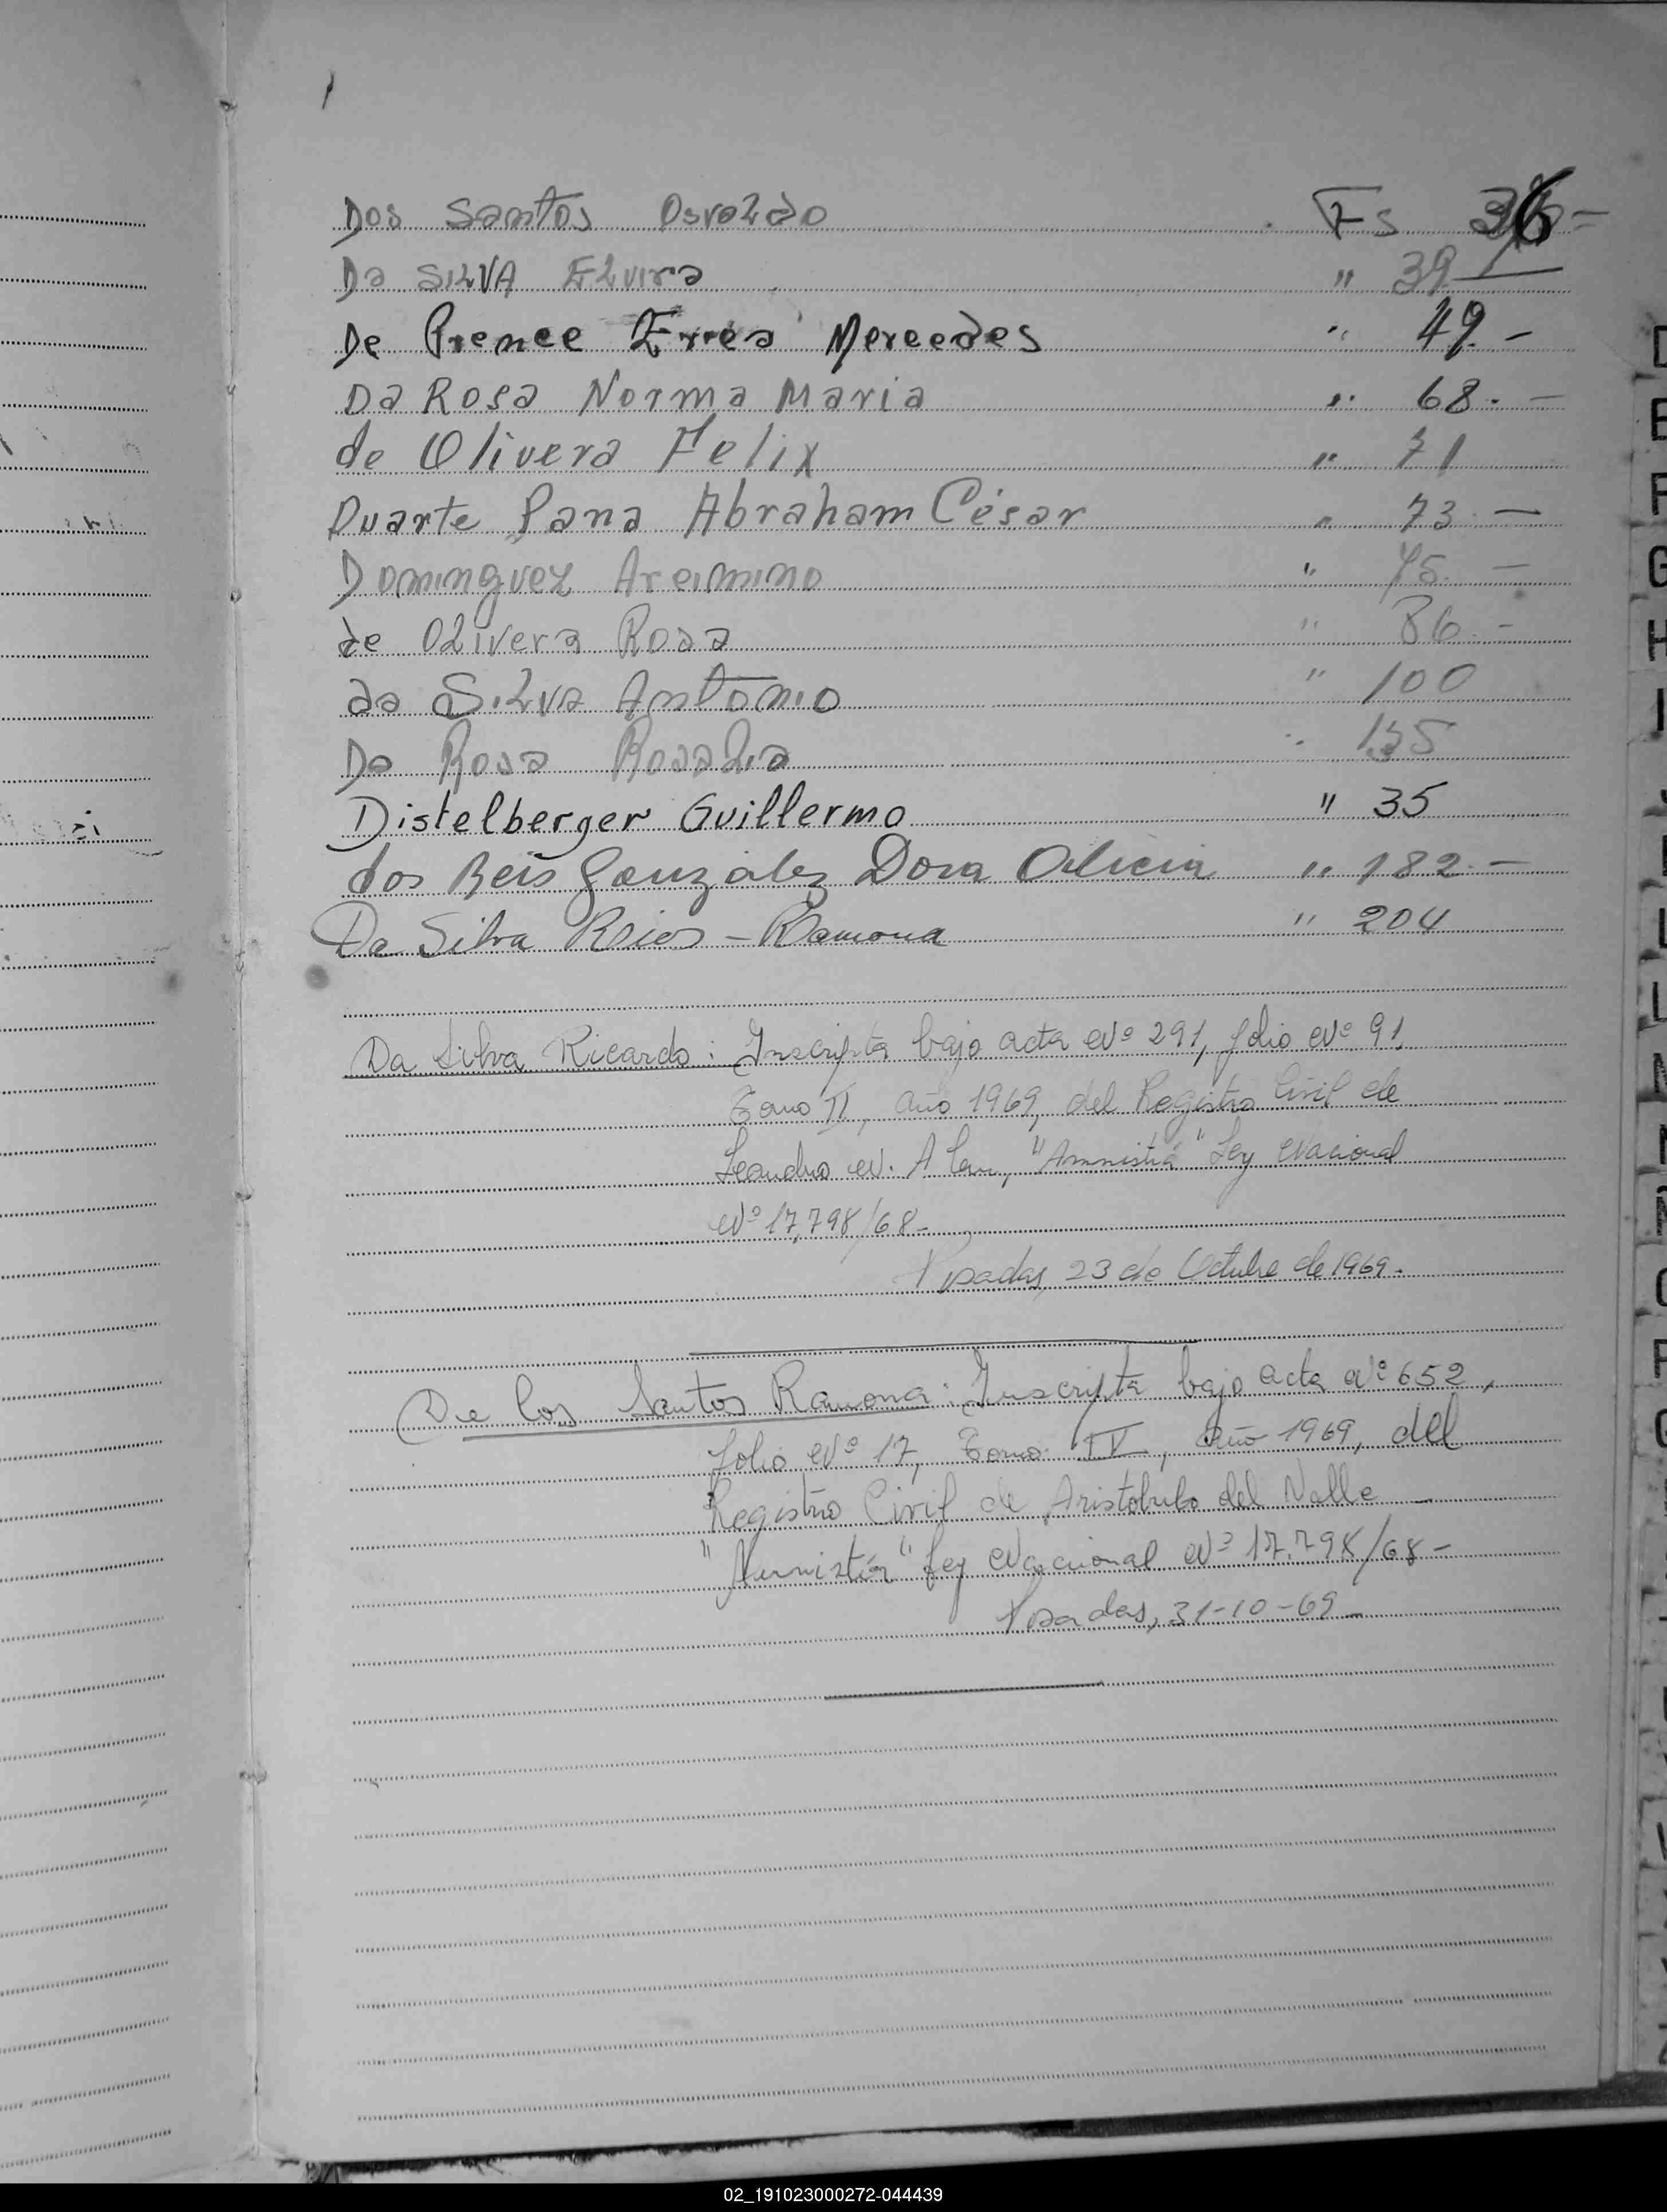 Dos Santos Osvaldo Fs 36 -
Da SILVA Elvira " 39 -
De Prence Mercedes " 49. -
Da Rosa Norma Maria " 68. -
de Olivera Felix " 71
Duarte Pana Abraham César " 73 -
Dominguez " 75. -
de Olivera Rosa " 86. -
da Silva Antonio " 100
Da Rosa Rosalia " 135
Distelberger Guillermo " 35
dos Reis González Dora Alicia " 182 -
Da Silva Rios - Ramona " 204
Da Silva Ricardo: Inscripta bajo acta Nº 291, folio Nº 91,
Tomo II, año 1969, del Registro Civil de
Leandro N. Alem, "Amnistia" Ley Nacional
Nº 17,798/68-
Posadas, 23 de Octubre de 1969.
De los Santos Ramona: Inscripta bajo acta Nº 652,
folio Nº 17, Tomo IV, año 1969, del
Registro Civil de Aristobulo del Valle
"Amnistía" Ley Nacional Nº 17.798/68-
Posadas, 31-10-69
D
E
F
G
H
I
02_191023000272-044439